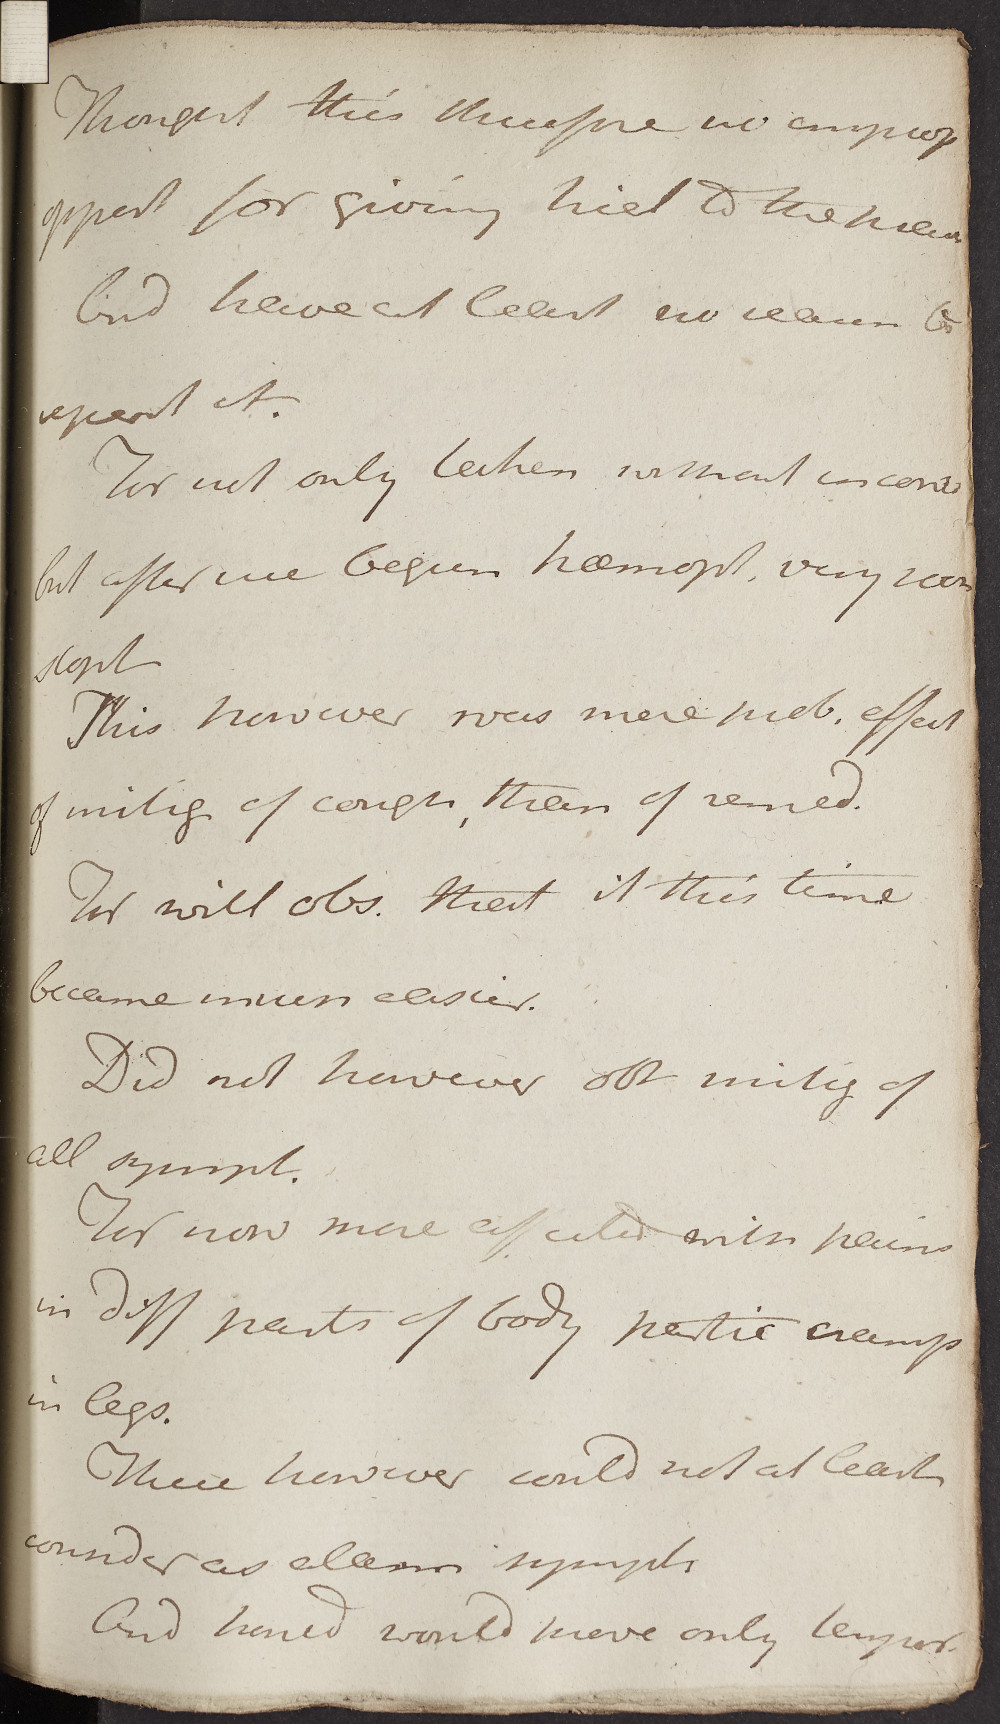 Thought this therefore no improp
opport for giving trial to the
And have at least no reason to
repent it.
For not only taken without inconv
but after use begun hæmopt. very soon
stopt
This however was more prob. effect
of mitig of cough, than of remed.
For will obs. that it this time
became much easier.
Did not however obt mitig of
all sympt.
For now more affected with pains
in diff parts of body partic cramp
in legs.
These however could not at least
consider as alarm sympts
And hoped would prove only tempor.